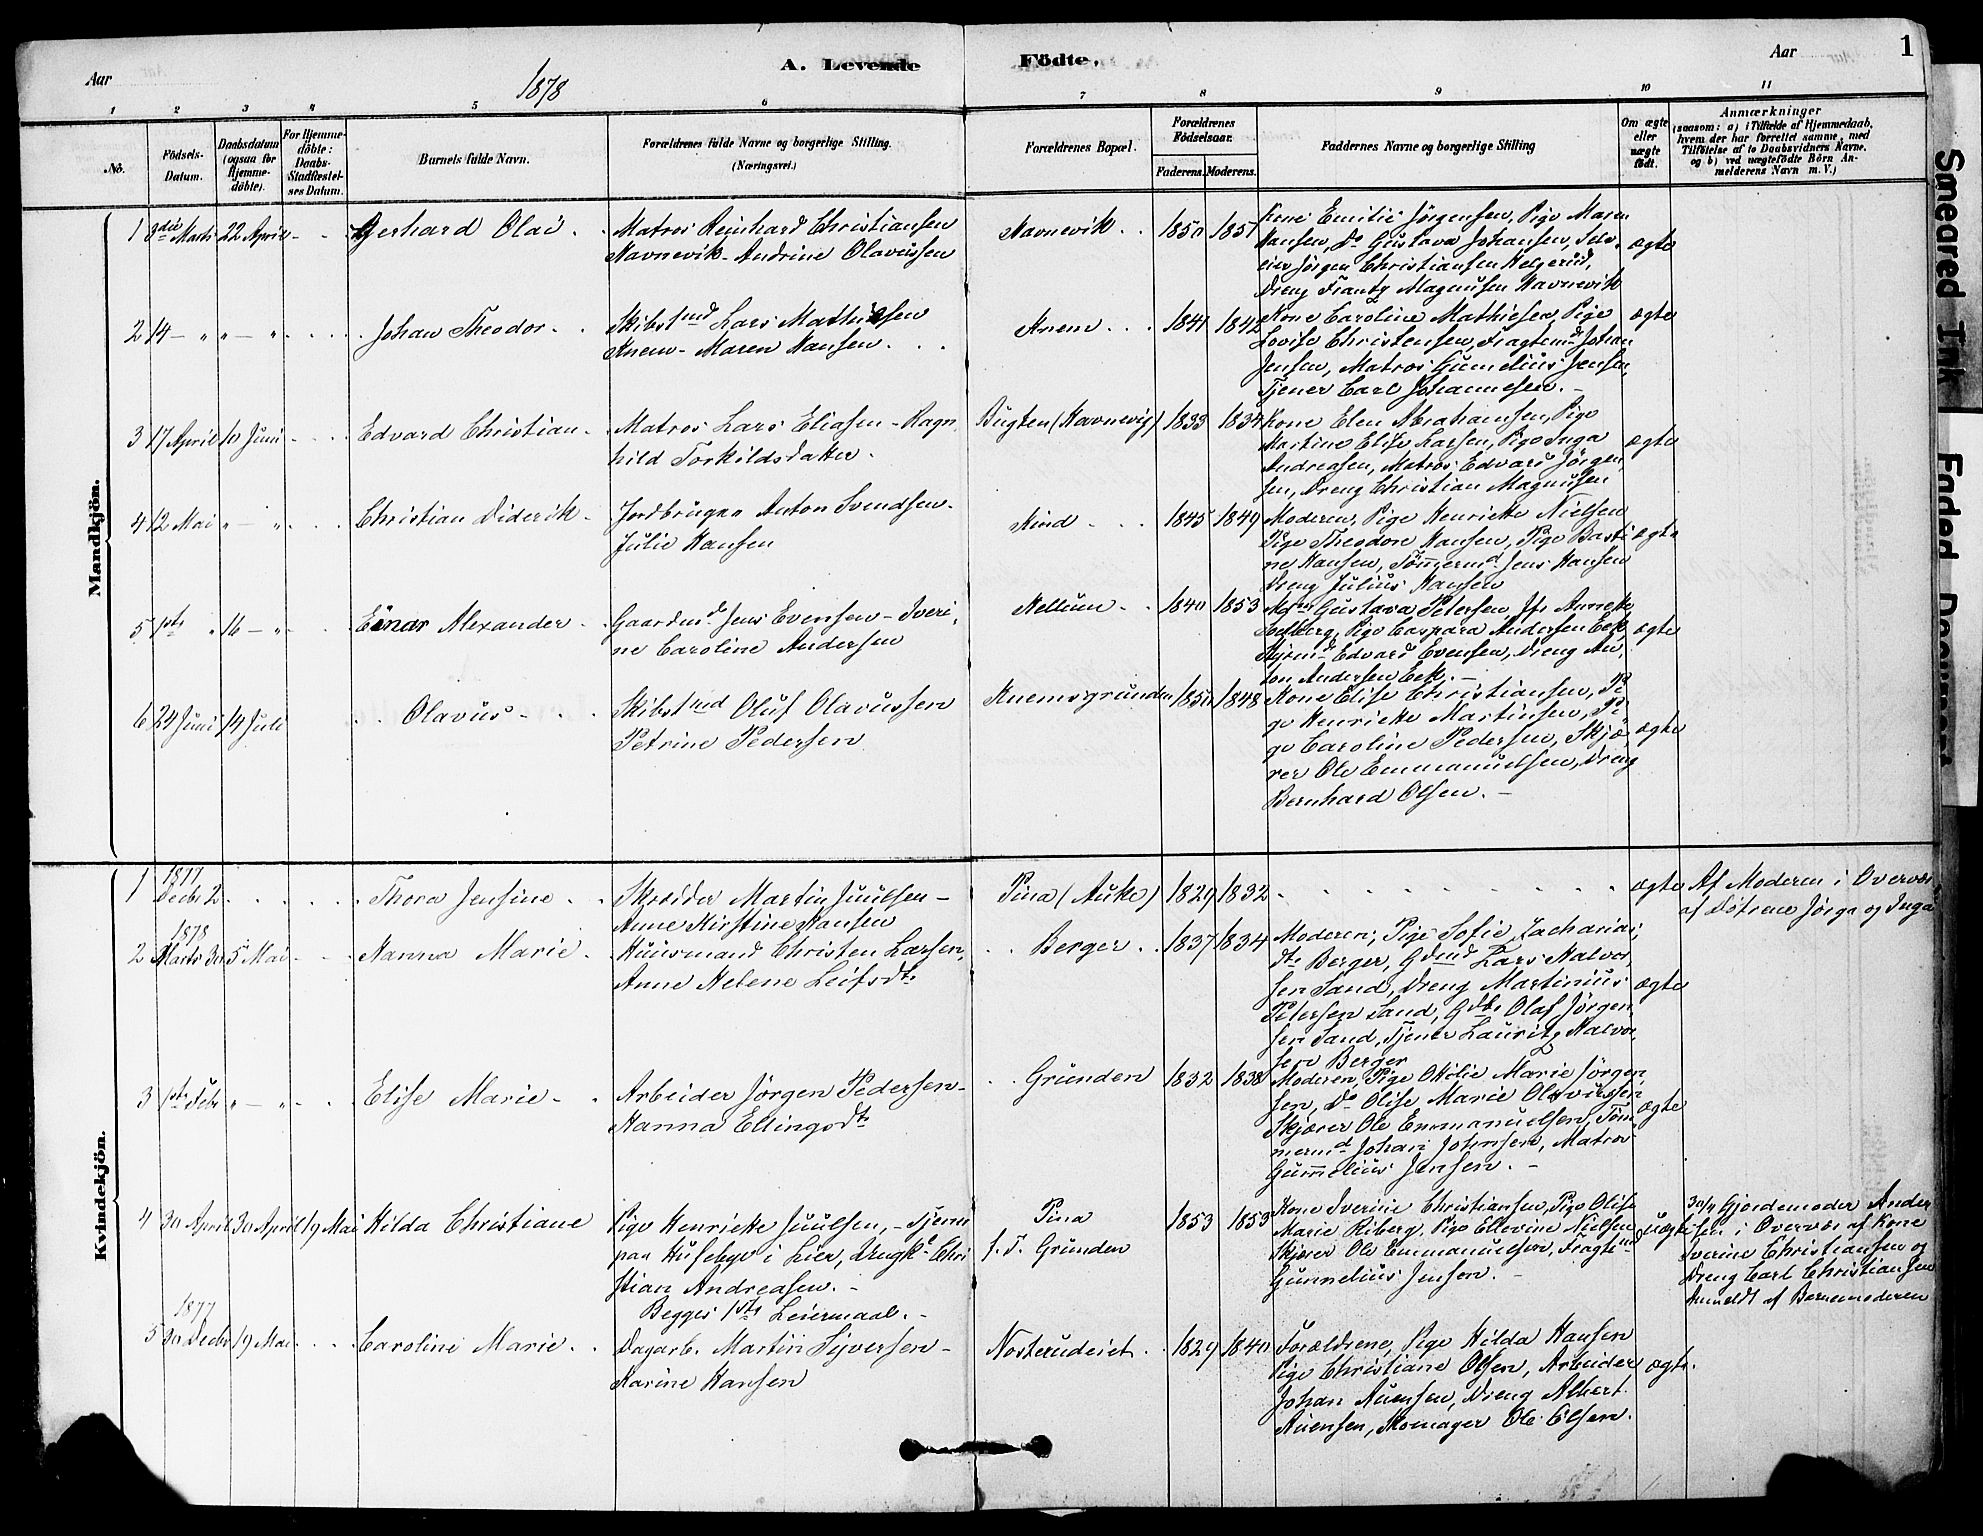 Aar 1878 A. Levende Födte. Aar 1
1 2 3 4 5 6 7 8 9 10 11
No.
Födsels-Datum.
Daabsdatum (ogsaa for Hjemme-döbte).
For Hjemme-döbte: Daabs-Stadfæstelses Datum.
Barnets fulde Navn.
Forældrenes fulde Navne og borgerlige Stilling.
(Næringsvei.)
Forældrenes Bopæl.
Forældrenes Födselsaar.
Faderens. Moderens.
Faddernes Navne og borgerlige Stilling
Om ægte eller uægte födt.
Anmærkninger
(saasom: a) i Tilfælde af Hjemmedaab,
hvem der har forrettet samme, med
Tilföielse af to Daabsvidners Navne,
og b) ved uægtefödte Börn An-
melderens Navn m. V.)
Mandkjön.
1 Marts 22 April Gerhard Olai Matros Reinhard Christiansen
Navnevik - Andrine Olavussen
Navnevik 1850 1851
Kone Emilie Jörgensen, Pige Maren
Hansen, Do Gustava Johansen, Selv-
eier Jörgen Christiansen Helgerud,
Dreng Frantz Magnusen Havnevik
ægte
2 14 - " " - " Johan Theodor Skibstmd Lars Mathiesen
Knem - Maren Hansen
Knem 1841 1842
Kone Caroline Mathiesen, Pige
Lovise Christensen, Fragtemd Johan
Jensen, Matros Gunnelius Jensen,
Tjener Carl Johannesen. -
ægte
3 17 April 10 Juni Edvard Christian Matros Lars Eliasen - Ragn-
hild Torkildsdatter.
Bugten (Havnevig) 1833 1834
Kone Elen Abrahamsen, Pige
Martine Elise Larsen, Pige Inga
Andreasen, Matros Edvard Jörgen-
sen, Dreng Christian Magnusen
ægte
4 12 Mai " - " Christian Diderik Jordbruger Anton Svendsen -
Julie Hansen
Kind 1845 1849
Moderen, Pige Henriette Nielsen
Pige Theodore Hansen, Pige Basti-
ne Hansen, Tömmermd Jens Hansen
Dreng Julius Hansen
ægte
5 1ste " 16 - " Einar Alexander Gaardmd Jens Evensen - Iveri-
ne Caroline Andersen
Nellum 1840 1853
Gustava Petersen, Annette
Pige Caspara Andersen Eek,
Styrmd Edvard Evensen, Dreng An-
ton Andersen Eek. -
ægte
6 24 Juni 14 Juli Olavus Skibstmd Oluf Olavussen
Petrine Pedersen
Knemsgrunden 1850 1848
Kone Elise Christiansen, Pi-
ge Henriette Martinsen, Pi-
ge Caroline Pedersen, Skjæ-
rer Ole Emmanuelsen, Dreng
Bernhard Olsen. -
ægte
Kvindekjön.
1 1877 Decbr 2 Thora Jensine Skræder Martin Juulsen -
Anne Kirstine Hansen
Pina (Auke) 1829 1832
ægte
Af Moderen i Overvær
af Dötrene Jörga og Inga
2 1878 Marts 30 5 Mai Hanna Marie Huusmand Christen Larsen,
Anne Helene Leifsdtr
Berger 1837 1834
Moderen; Pige Sofie Zacharias-
dtr Berger, Gdmd Lars Halvor-
sen Sand, Dreng Martinius
Petersen Sand, Gdbr Olaf Jörgen-
sen Sand, Tjener Lauritz Halvor-
sen Berger
ægte
3 1ste Febr " - " Elise Marie Arbeider Jörgen Pedersen -
Hanna Ellingsdtr
Grunden 1832 1838
Moderen, Pige Otilie Marie Jörgen-
sen, Do Olise Marie Olavussen
Skjærer Ole Emmanuelsen, Töm-
mermd Johan Johnsen, Matros
Gunnelius Jensen. -
ægte
4 30 April 30 April 19 Mai Hilda Christiane Pige Henriette Juulsen, - Tjener
paa Husebye i Lier, Ungk. Chri-
stian Andreasen. -
Begges 1ste Leiermaal. -
Pina
f. T. Grunden
1853 1853
Kone Iverine Christiansen, Pige Olise
Marie Riberg, Pige Ellevine Nielsen
Skjærer Ole Emmanuelsen, Fragtemd
Gunnelius Jensen. -
uægte
30/4 Gjordemoder Ander-
sen i Overvær af Kone
Iverine Christiansen og
Dreng Carl Christiansen
Anmeldt af Barnemoderen
5 1877 30 Decbr 19 Mai Caroline Marie Dagarb. Martin Syversen -
Karine Hansen
Nosterudeiet 1829 1840
Forældrene, Pige Hilda Hansen
Pige Christiane Olsen, Arbeider
Johan Auensen, Dreng Albert
Auensen, Skomager Ole Olsen.
ægte.
Smeared Ink
Faded Document